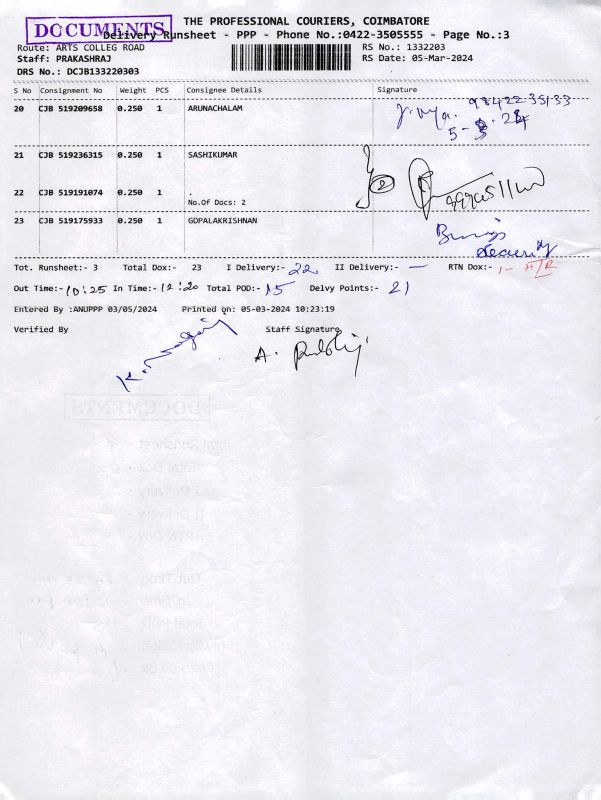 THE PROFESSIONAL COURIERS, COIMBATORE
DOCUMENTS
Delivery Runsheet - PPP - Phone No.:0422-3505555 - Page No.:3
Route: ARTS COLLEG ROAD RS No.: 1332203
Staff: PRAKASHRAJ RS Date: 05-Mar-2024
DRS No.: DCJB133220303
S No Consignment No Weight PCS Consignee Details Signature
20 CJB 519209658 0.250 1 ARUNACHALAM 98422-35133
5-3-24
21 CJB 519236315 0.250 1 SASHIKUMAR
22 CJB 519191074 0.250 1 .
No.Of Docs: 2
23 CJB 519175933 0.250 1 GOPALAKRISHNAN
Security
Tot. Runsheet:- 3 Total Dox:- 23 I Delivery:- 22 II Delivery:- — RTN Dox:- 1-
Out Time:- 10:25 In Time:- 12:20 Total POD:- 15 Delvy Points:- 21
Entered By :ANUPPP 03/05/2024 Printed on: 05-03-2024 10:23:19
Verified By Staff Signature